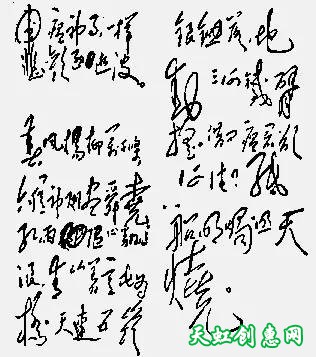 瘟神事一样
悲欢逐逝波。
春风杨柳万千条
六亿神州尽舜尧
红雨随心翻作
浪青山着意为
桥天连五岭
银锄落地
动三河铁臂
摇借问瘟君欲
何往纸
船明烛照天
烧。
天虹创意网